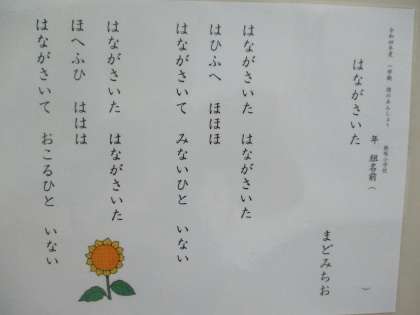 令和四年度 一学期 詩のあんしょう
小学校
年 組 名前( )
はながさいた
まどみちお
はながさいた はながさいた
はひふへ ほほほ
はながさいて みないひと いない
はながさいた はながさいた
ほへふひ ははは
はながさいて おこるひと いない